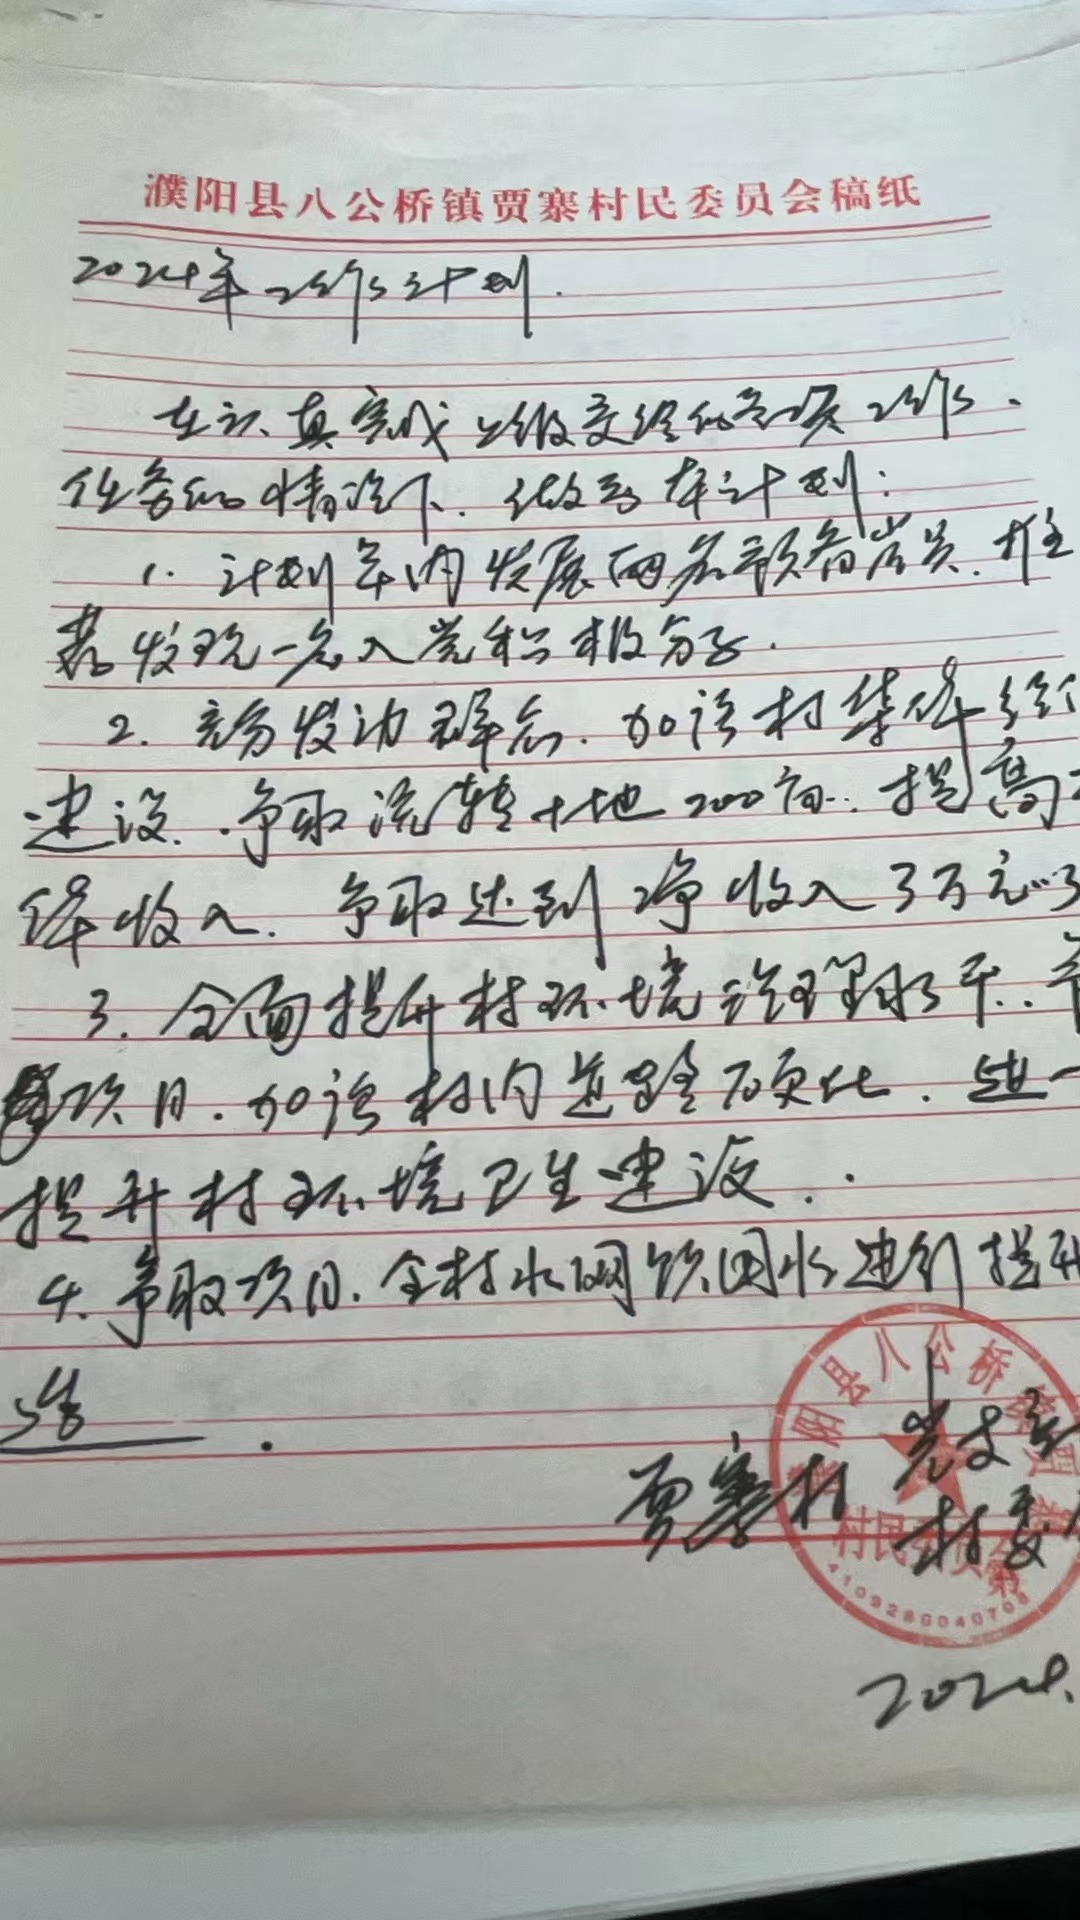 濮阳县八公桥镇贾寨村民委员会稿纸
2024年工作计划.
在认真完成上级交给的各项工作.
任务的情况下.做好本计划:
1.计划年内发展两名预备党员.推
荐发现一名入党积极分子.
2.充分发动群众.加强村集体经
建设.争取流转土地200亩.提高
体收入.争取达到净收入3万元
3.全面提升村环境治理水平.
项目.加强村内道路硬化.进一
提升村环境卫生建设.
4.争取项目.全村水网饮用水进行提升
造.
贾寨村 党支
村委
濮阳县八公桥镇贾寨
村民委员会
2024.